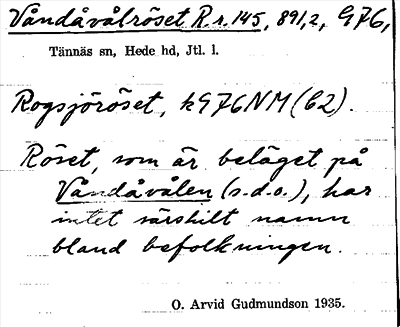 Våndåvålröset R.r. 145, 891,2, G76,
Tännäs sn, Hede hd, Jtl. l.
Rogsjöröset, kG76NM (C2).
Röset, som är beläget på
Våndåvålen (s.d.o.), har
intet särskilt namn
bland befolkningen.
O. Arvid Gudmundson 1935.